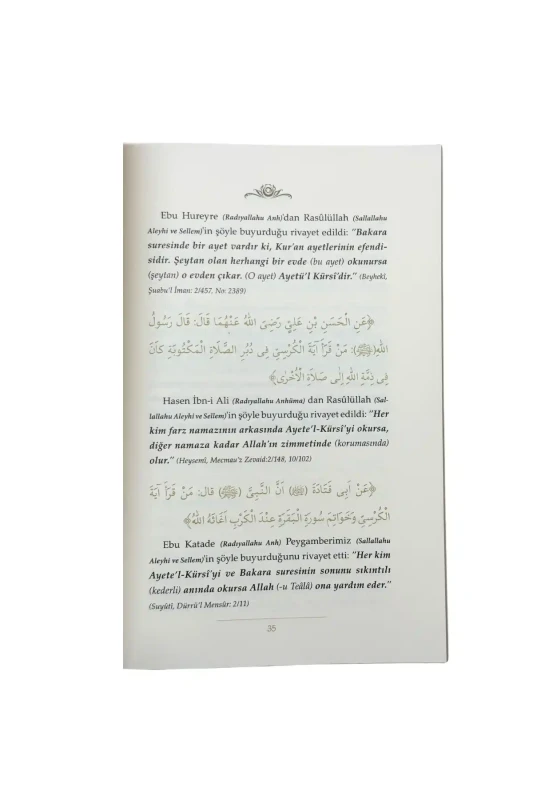 Ebu Hureyre (Radıyallahu Anh)'dan Rasûlüllah (Sallallahu
Aleyhi ve Sellem)'in şöyle buyurduğu rivayet edildi: "Bakara
suresinde bir ayet vardır ki, Kur'an ayetlerinin efendi-
sidir. Şeytan olan herhangi bir evde (bu ayet) okunursa
(şeytan) o evden çıkar. (O ayet) Ayetü'l Kürsî'dir." (Beyhekî,
Şuabu'l İman: 2/457, No: 2389)
﴿عَنِ الْحَسَنِ بْنِ عَلِيٍّ رَضِىَ اللهُ عَنْهُمَا قَالَ: قَالَ رَسُولُ
اللهِ(ﷺ): مَنْ قَرَأَ آيَةَ الْكُرْسِيِّ فِى دُبُرِ الصَّلَاةِ الْمَكْتُوبَةِ كَانَ
فِى ذِمَّةِ اللهِ اِلٰى صَلَاةِ الْاُخْرٰى﴾
Hasen İbn-i Ali (Radıyallahu Anhüma) dan Rasûlüllah (Sal-
lallahu Aleyhi ve Sellem)'in şöyle buyurduğu rivayet edildi: "Her
kim farz namazının arkasında Ayete'l-Kürsî'yi okursa,
diğer namaza kadar Allah'ın zimmetinde (korumasında)
olur." (Heysemî, Mecmau'z Zevaid:2/148, 10/102)
﴿عَنْ اَبِى قَتَادَةَ (ﷺ) اَنَّ النَّبِىَّ (ﷺ) قال: مَنْ قَرَاَ آيَةَ
الْكُرْسِىِّ وَخَوَاتِمَ سُورَةِ الْبَقَرَةِ عِنْدَ الْكَرْبِ اَغَاثَهُ اللهُ﴾
Ebu Katade (Radıyallahu Anh) Peygamberimiz (Sallallahu
Aleyhi ve Sellem)'in şöyle buyurduğunu rivayet etti: "Her kim
Ayete'l-Kürsî'yi ve Bakara suresinin sonunu sıkıntılı
(kederli) anında okursa Allah (-u Teâlâ) ona yardım eder."
(Suyûtî, Dürrü'l Mensûr: 2/11)
35